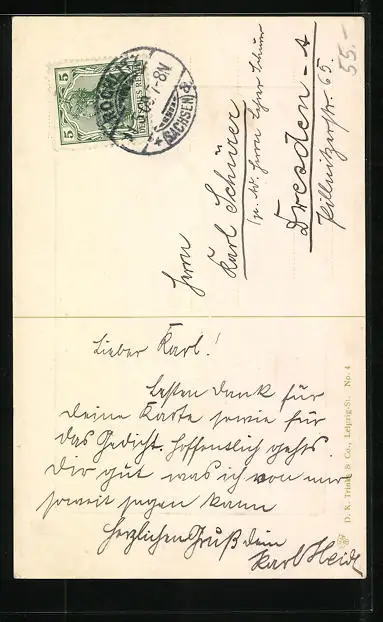 5
5
DEUTSCHES REICH
7-8N
* (SACHSEN) a
55.-
Herrn
Karl Schürer
Herrn Lehrer Schürer
Dresden - A
Pillnitzerstr 65.
Lieber Karl!
Besten Dank für
deine Karte sowie für
das Gedicht. Hoffentlich gehts
Dir gut was ich von mir
soweit sagen kann
Herzlichen Gruß dein
Karl Heidl
D. K. & Co., Leipzig-St. No. 4